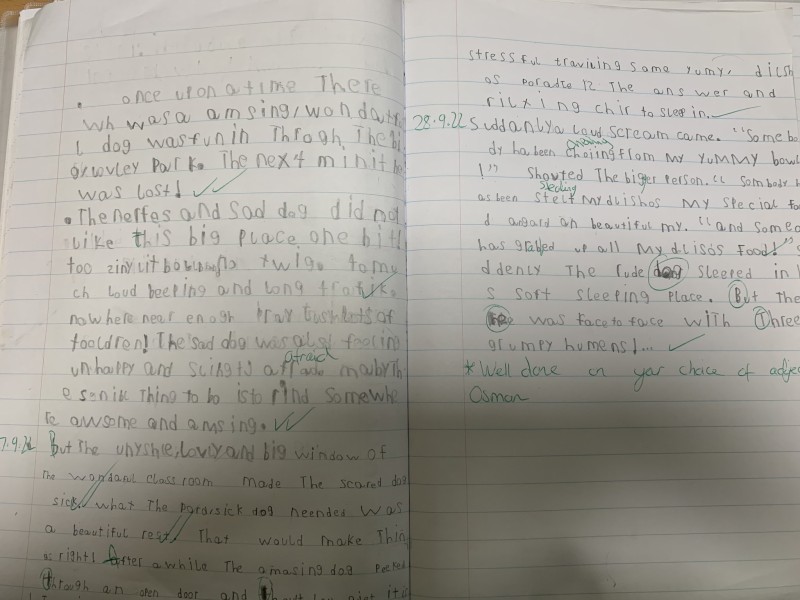 once upon a time There
wh was a amsing, wondarfu
l dog was fun in Throgh The bi
g, lovley Park. The next minit he
was lost!
The neffes and sad dog did not
like this big place one bit!
too ziny lit bowldings twigo tomy
ch loud beeping and long trafik.
now here near enogh
fooldren! The sad dog was also feeling
afraid
unhappy and maby Th
e sonik Thing to bo is to find somewhe
re awsome and amsing.
But the unyshle, lovly and big window of
The wondaful class room made The scared dog
sick. what The pararsick dog neended was
a beautiful rest. That would make Thin
gs right! After a while The amasing dog peeked
through an open door and
stressful travining some yumy, dilsh
as paradte 12 The answer and
rilxing chir to sleep in.
28.9.22 Suddanly a loud scream came. "Some bo
choosing
dy ha been choiing from my yummy bowl
!" Showted The biger person. "Sombody h
stealing
as been stelf my dlishos my special foo
d angard an beautiful my. "and someo
has grabed up all my dlisos food!" S
ddenly The rude dog sleeped in h
s soft sleeping place. But The
was face to face with Three
grumpy humens!...
*Well done on your choice of adjec
Osman